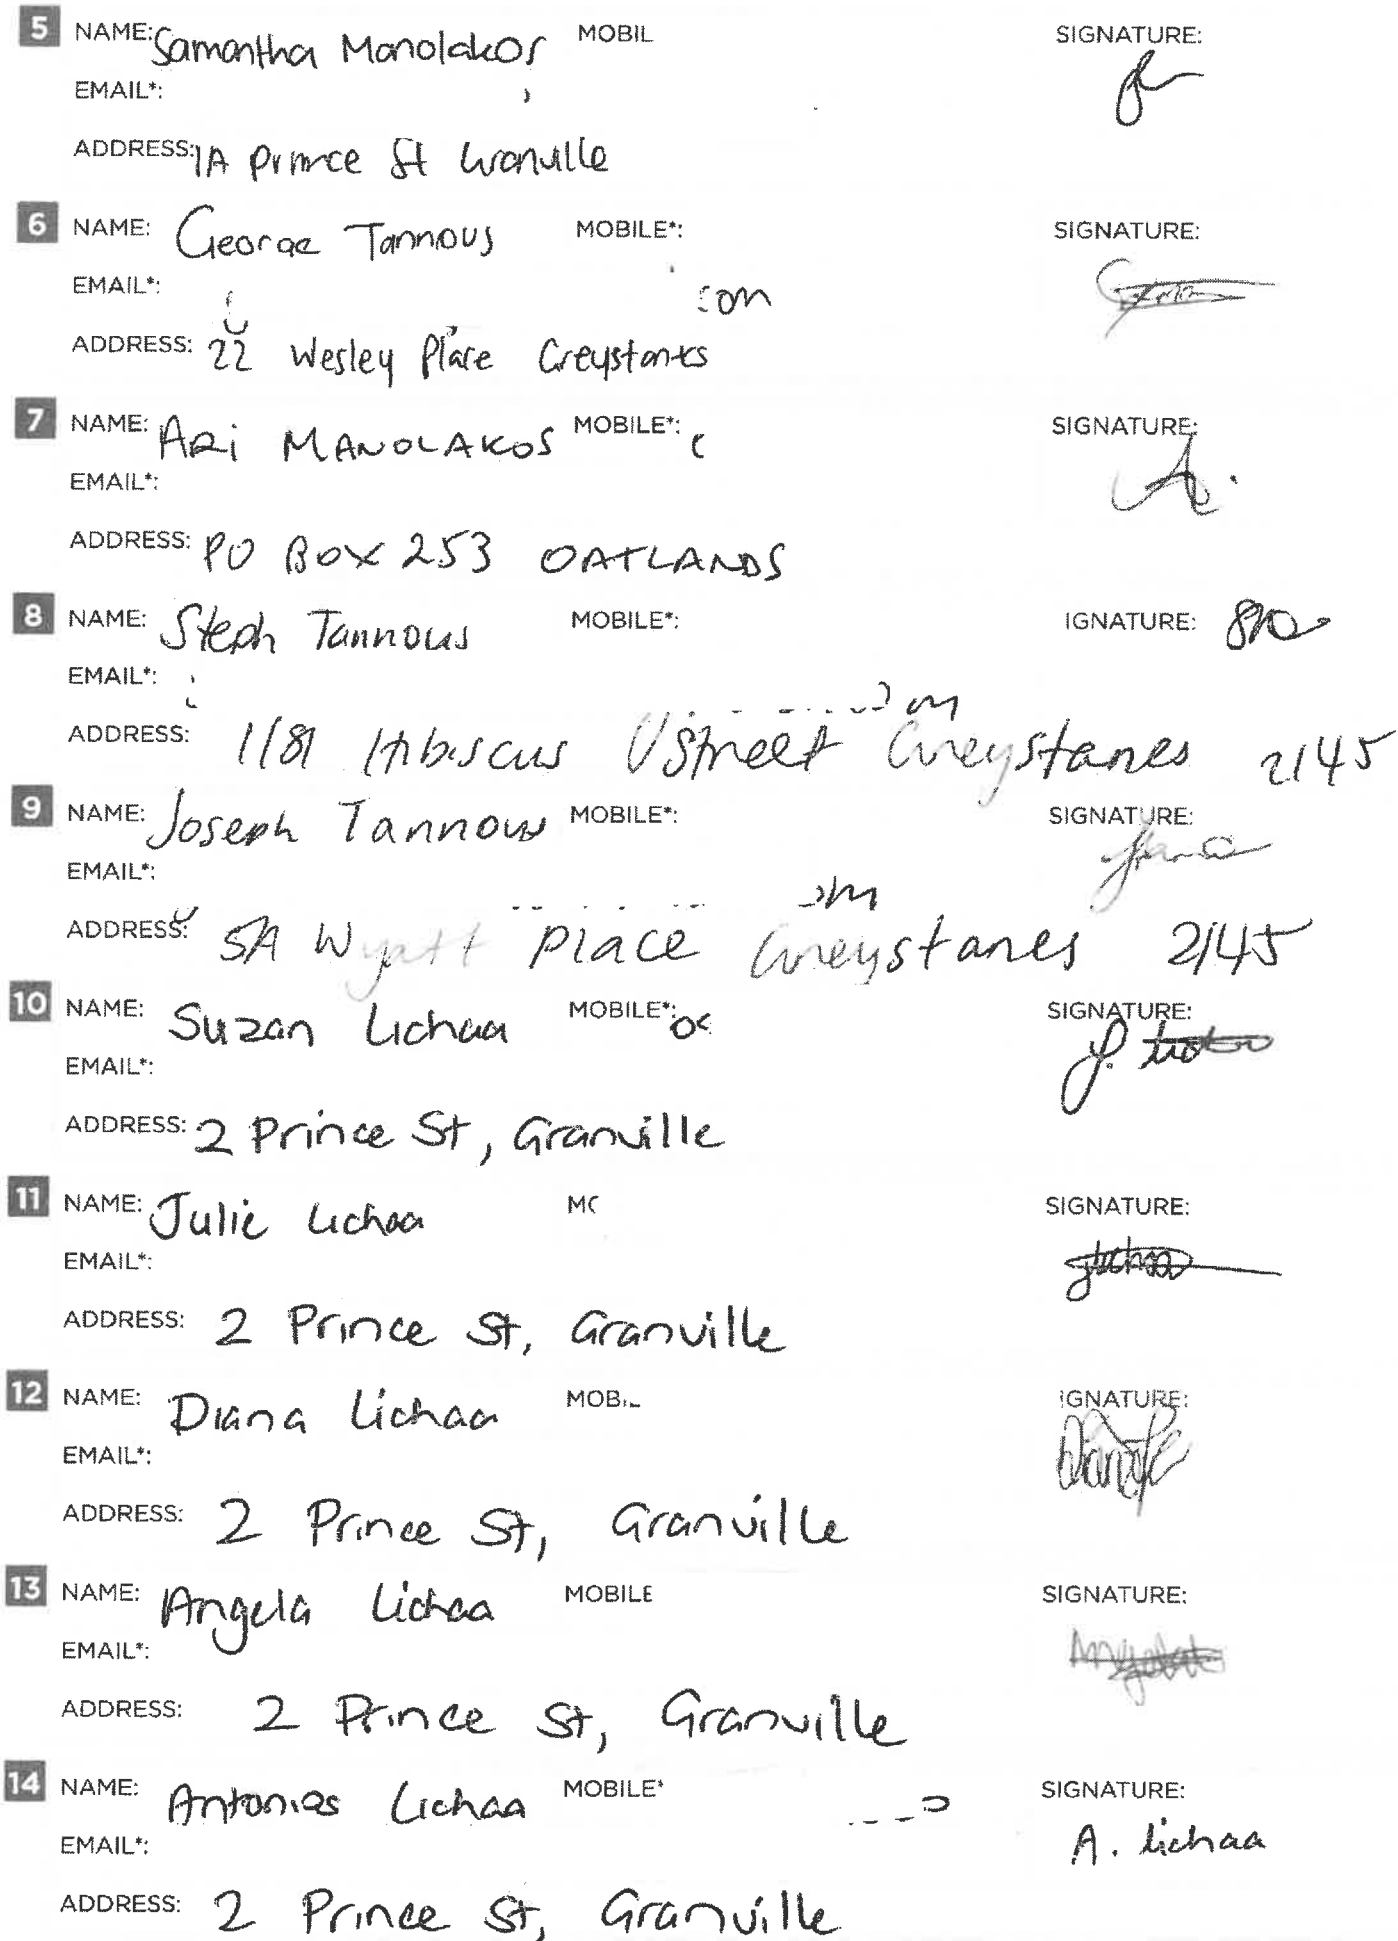 5 NAME: Samantha Manolakos MOBIL SIGNATURE:
EMAIL*:
ADDRESS: 1A Prince St Granville
6 NAME: George Tannous MOBILE*: SIGNATURE:
EMAIL*: com
ADDRESS: 22 Wesley Place Greystanes
7 NAME: ARi MANOLAKOS MOBILE*: SIGNATURE:
EMAIL*:
ADDRESS: PO BOX 253 OATLANDS
8 NAME: Steph Tannous MOBILE*: IGNATURE:
EMAIL*: om
ADDRESS: 1/81 Hibiscus Street Greystanes 2145
9 NAME: Joseph Tannous MOBILE*: SIGNATURE:
EMAIL*: om
ADDRESS: 5A Wyatt Place Greystanes 2145
10 NAME: Suzan Lichaa MOBILE*: SIGNATURE:
EMAIL*:
ADDRESS: 2 Prince St, Granville
11 NAME: Julie Lichaa MO SIGNATURE:
EMAIL*:
ADDRESS: 2 Prince St, Granville
12 NAME: Diana Lichaa MOB IGNATURE:
EMAIL*:
ADDRESS: 2 Prince St, Granville
13 NAME: Angela Lichaa MOBILE SIGNATURE:
EMAIL*:
ADDRESS: 2 Prince St, Granville
14 NAME: Antonios Lichaa MOBILE* SIGNATURE:
EMAIL*: A. Lichaa
ADDRESS: 2 Prince St, Granville